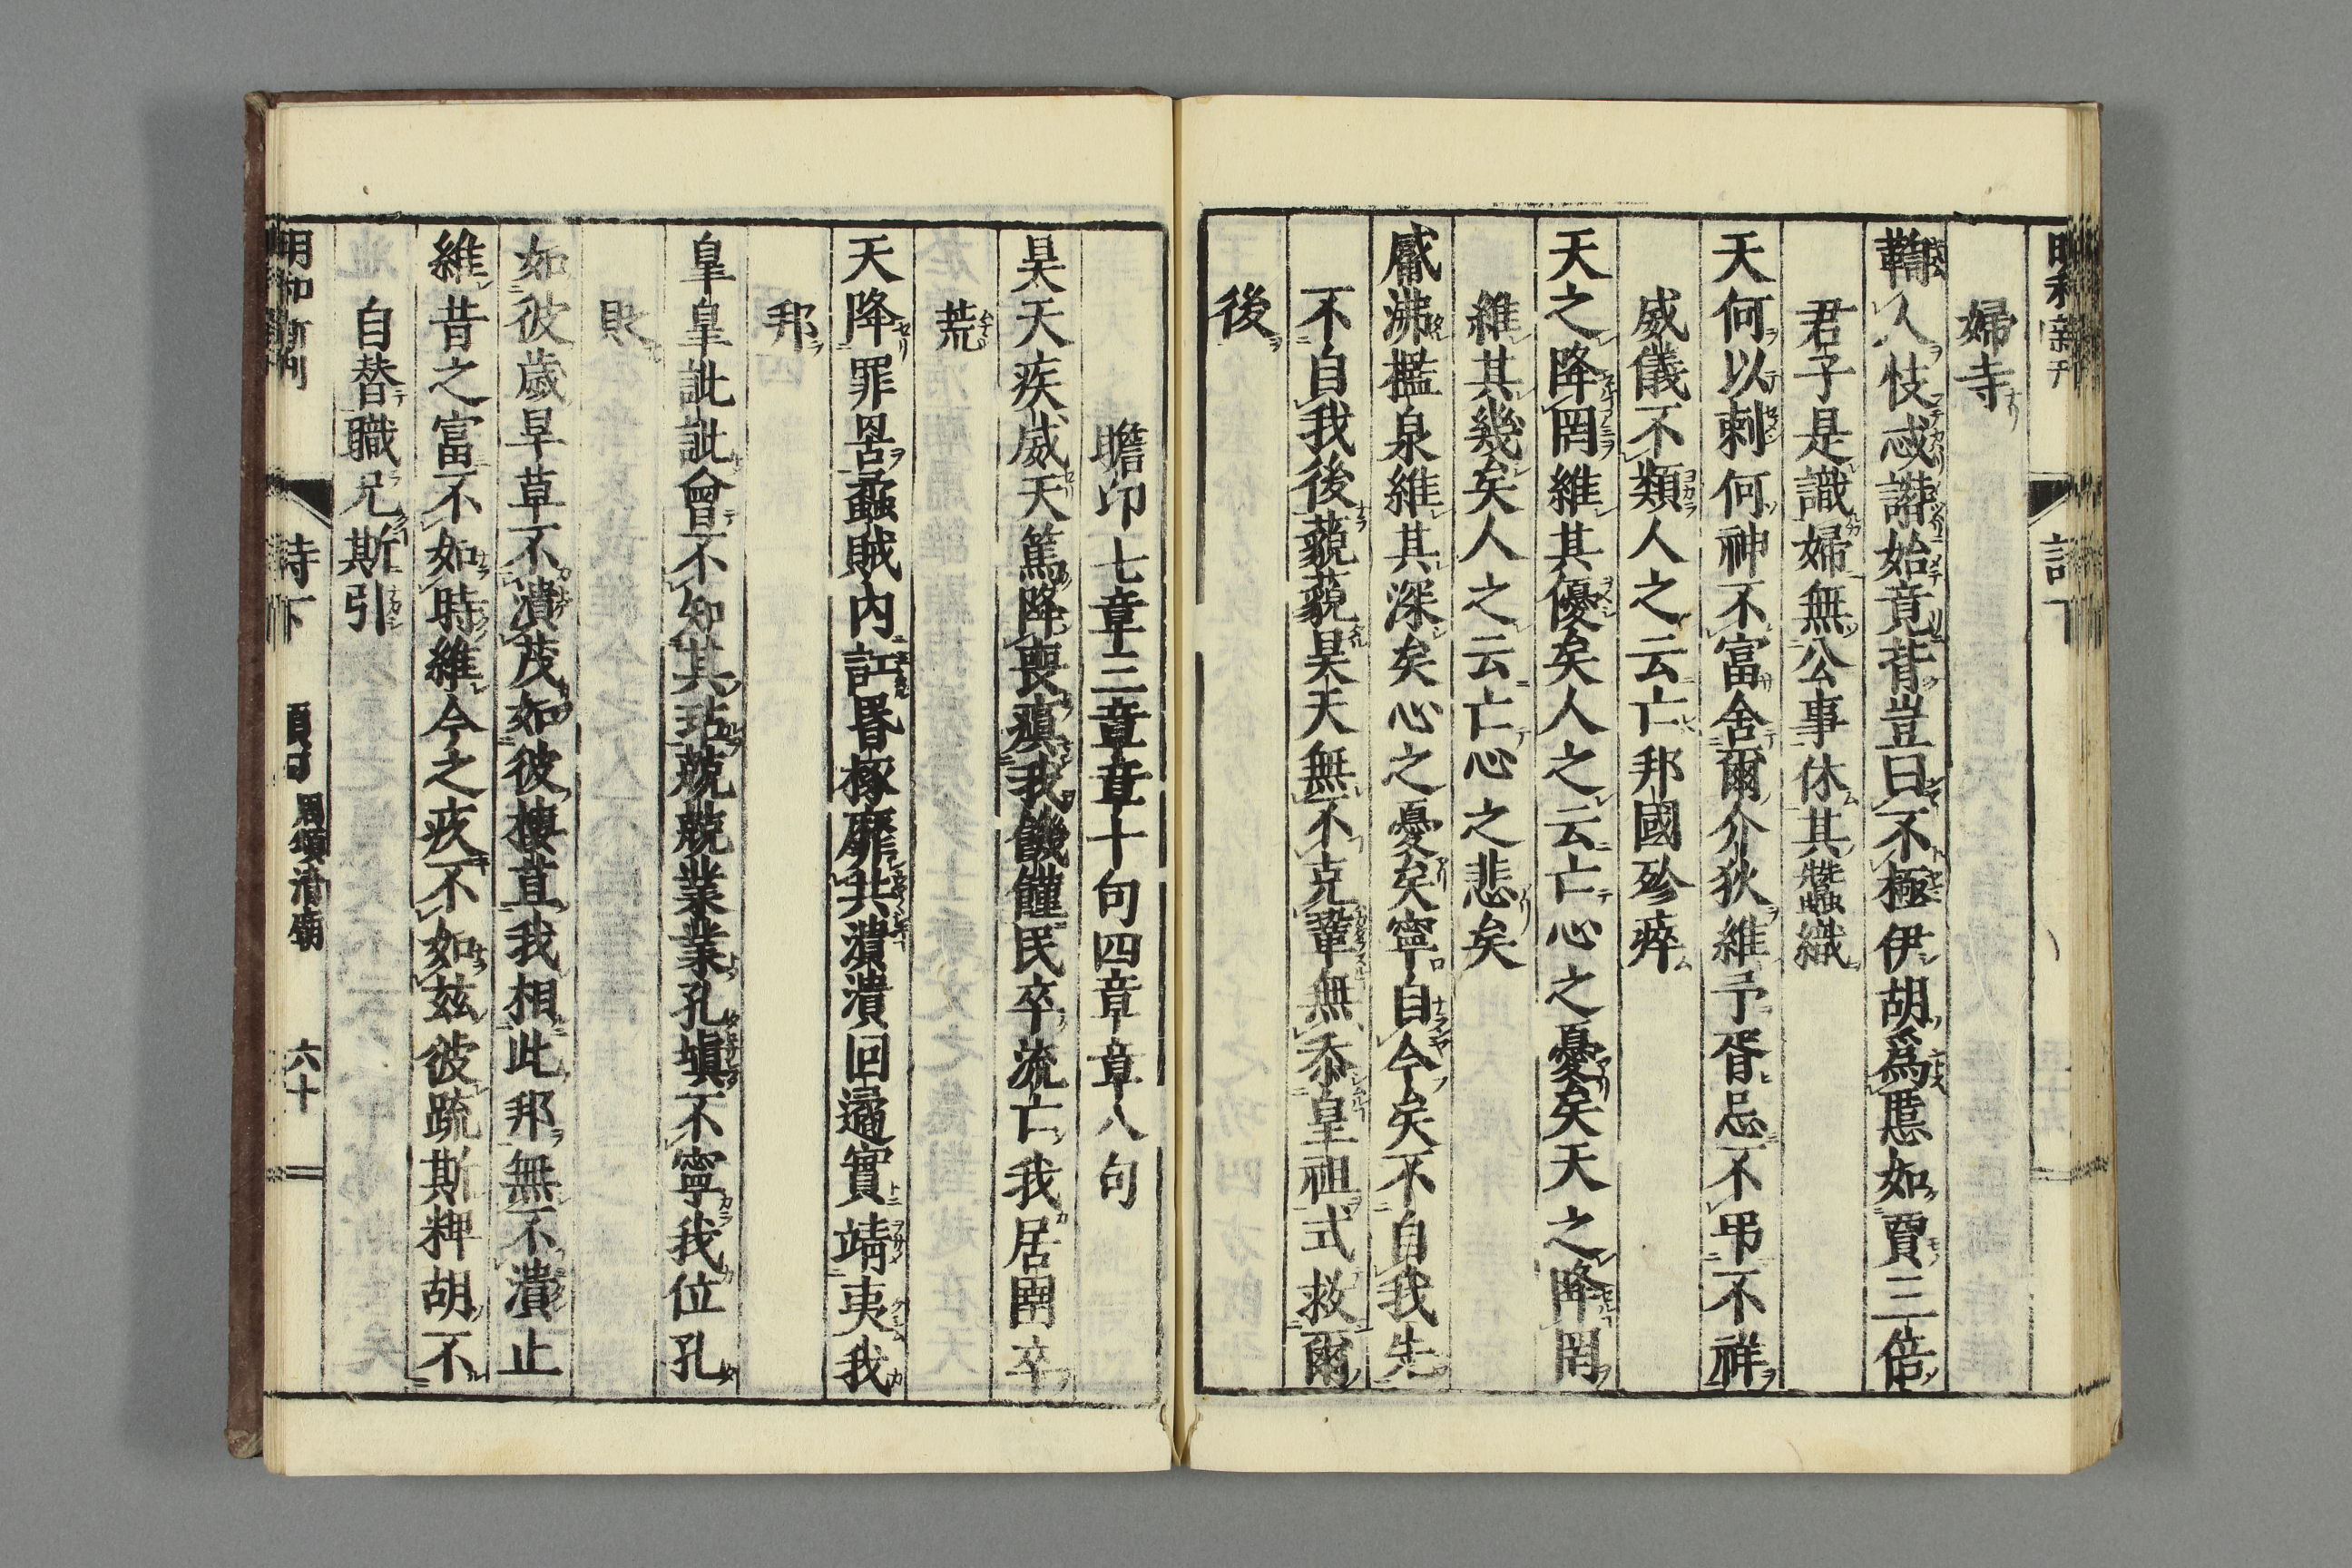 明和新刊
詩下
婦寺
鞫人忮忒譛始竟背豈曰不極伊胡爲慝如賈三倍
君子是識婦無公事休其蠶織
天何以刺何神不富舍爾介狄維予胥忌不弔不祥
威儀不類人之云亡邦國殄瘁
天之降罔維其優矣人之云亡心之憂矣天之降罔
維其幾矣人之云亡心之悲矣
觱沸檻泉維其深矣心之憂矣寧自今矣不自我先
不自我後藐藐昊天無不克鞏無忝皇祖式救爾
後
瞻卬七章三章章十句四章章八句
昊天疾威天篤降喪瘨我饑饉民卒流亡我居圉卒
荒
天降罪罟蟊賊內訌昬椓靡共潰潰回遹實靖夷我
邦
皐皐訿訿曾不知其玷兢兢業業孔塡不寧我位孔
貶
如彼歲旱草不潰茂如彼棲苴我相此邦無不潰止
維昔之富不如時維今之疚不如茲彼疏斯粺胡不
自替職兄斯引
明和新刊
詩下
周頌淸廟
六十